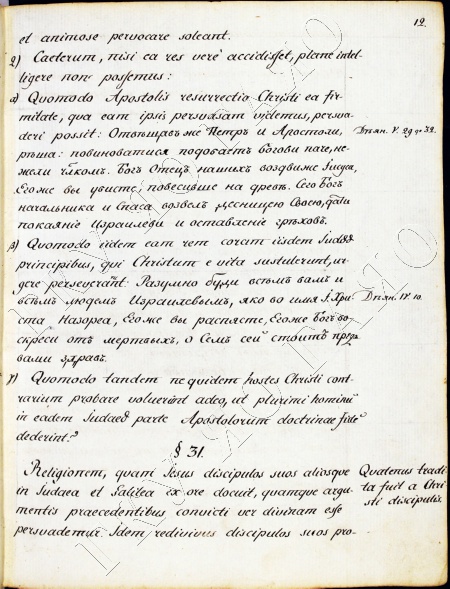 12.
et animose pervocare soleant.
2) Caeterum, nisi ea res verè accidisset, planè intel-
ligere non possemus:
α) Quomodo Apostolis resurrectio Christi ea fir-
mitate, qua eam ipsis persuasam videmus, persva-
deri possit: Отвѣщавъ же Петръ и Апостоли, Дѣян. V. 29 до 32.
рѣша: повиноватися подобаетъ Богови паче, не-
жели чл҃комъ. Богъ Отецъ нашихъ воздвиже Іисуса,
Егоже вы убисте, повесивше на древѣ. Сего Богъ
начальника и Спаса возвелъ десницею Своею, дати
покаяніе Израилеви и оставленіе грѣховъ.
β) Quomodo iidem eam rem coram iisdem Judaeor
principibus, qui Christum e vita sustulerunt, ur-
gere perseverarint: Разумно буди всѣмъ вамъ и
всѣмъ людемъ Израилевымъ, яко во имя І. Хри- Дѣян. IV. 10.
ста Назорea, Егоже вы распясте, Егоже Богъ во-
скреси отъ мертвыхъ, о Семъ сей стоитъ пред
вами здравъ.
γ) Quomodo tandem ne quidem hostes Christi cont-
rarium probare voluerint adeo, ut plurimi hominū
in eadem Judaeae parte Apostolorum doctrinae fidē
dederint?
§ 31.
Religionem, quam Jesus discipulos suos aliosque Quatenus tradi-
in Judaea et Galilea ex ore docuit, quamque argu- ta fuit a Chri-
mentis praecedentibus convicti ver divinam esse sti discipulis.
persuademur. Idem redivivus discipulos suos pro-